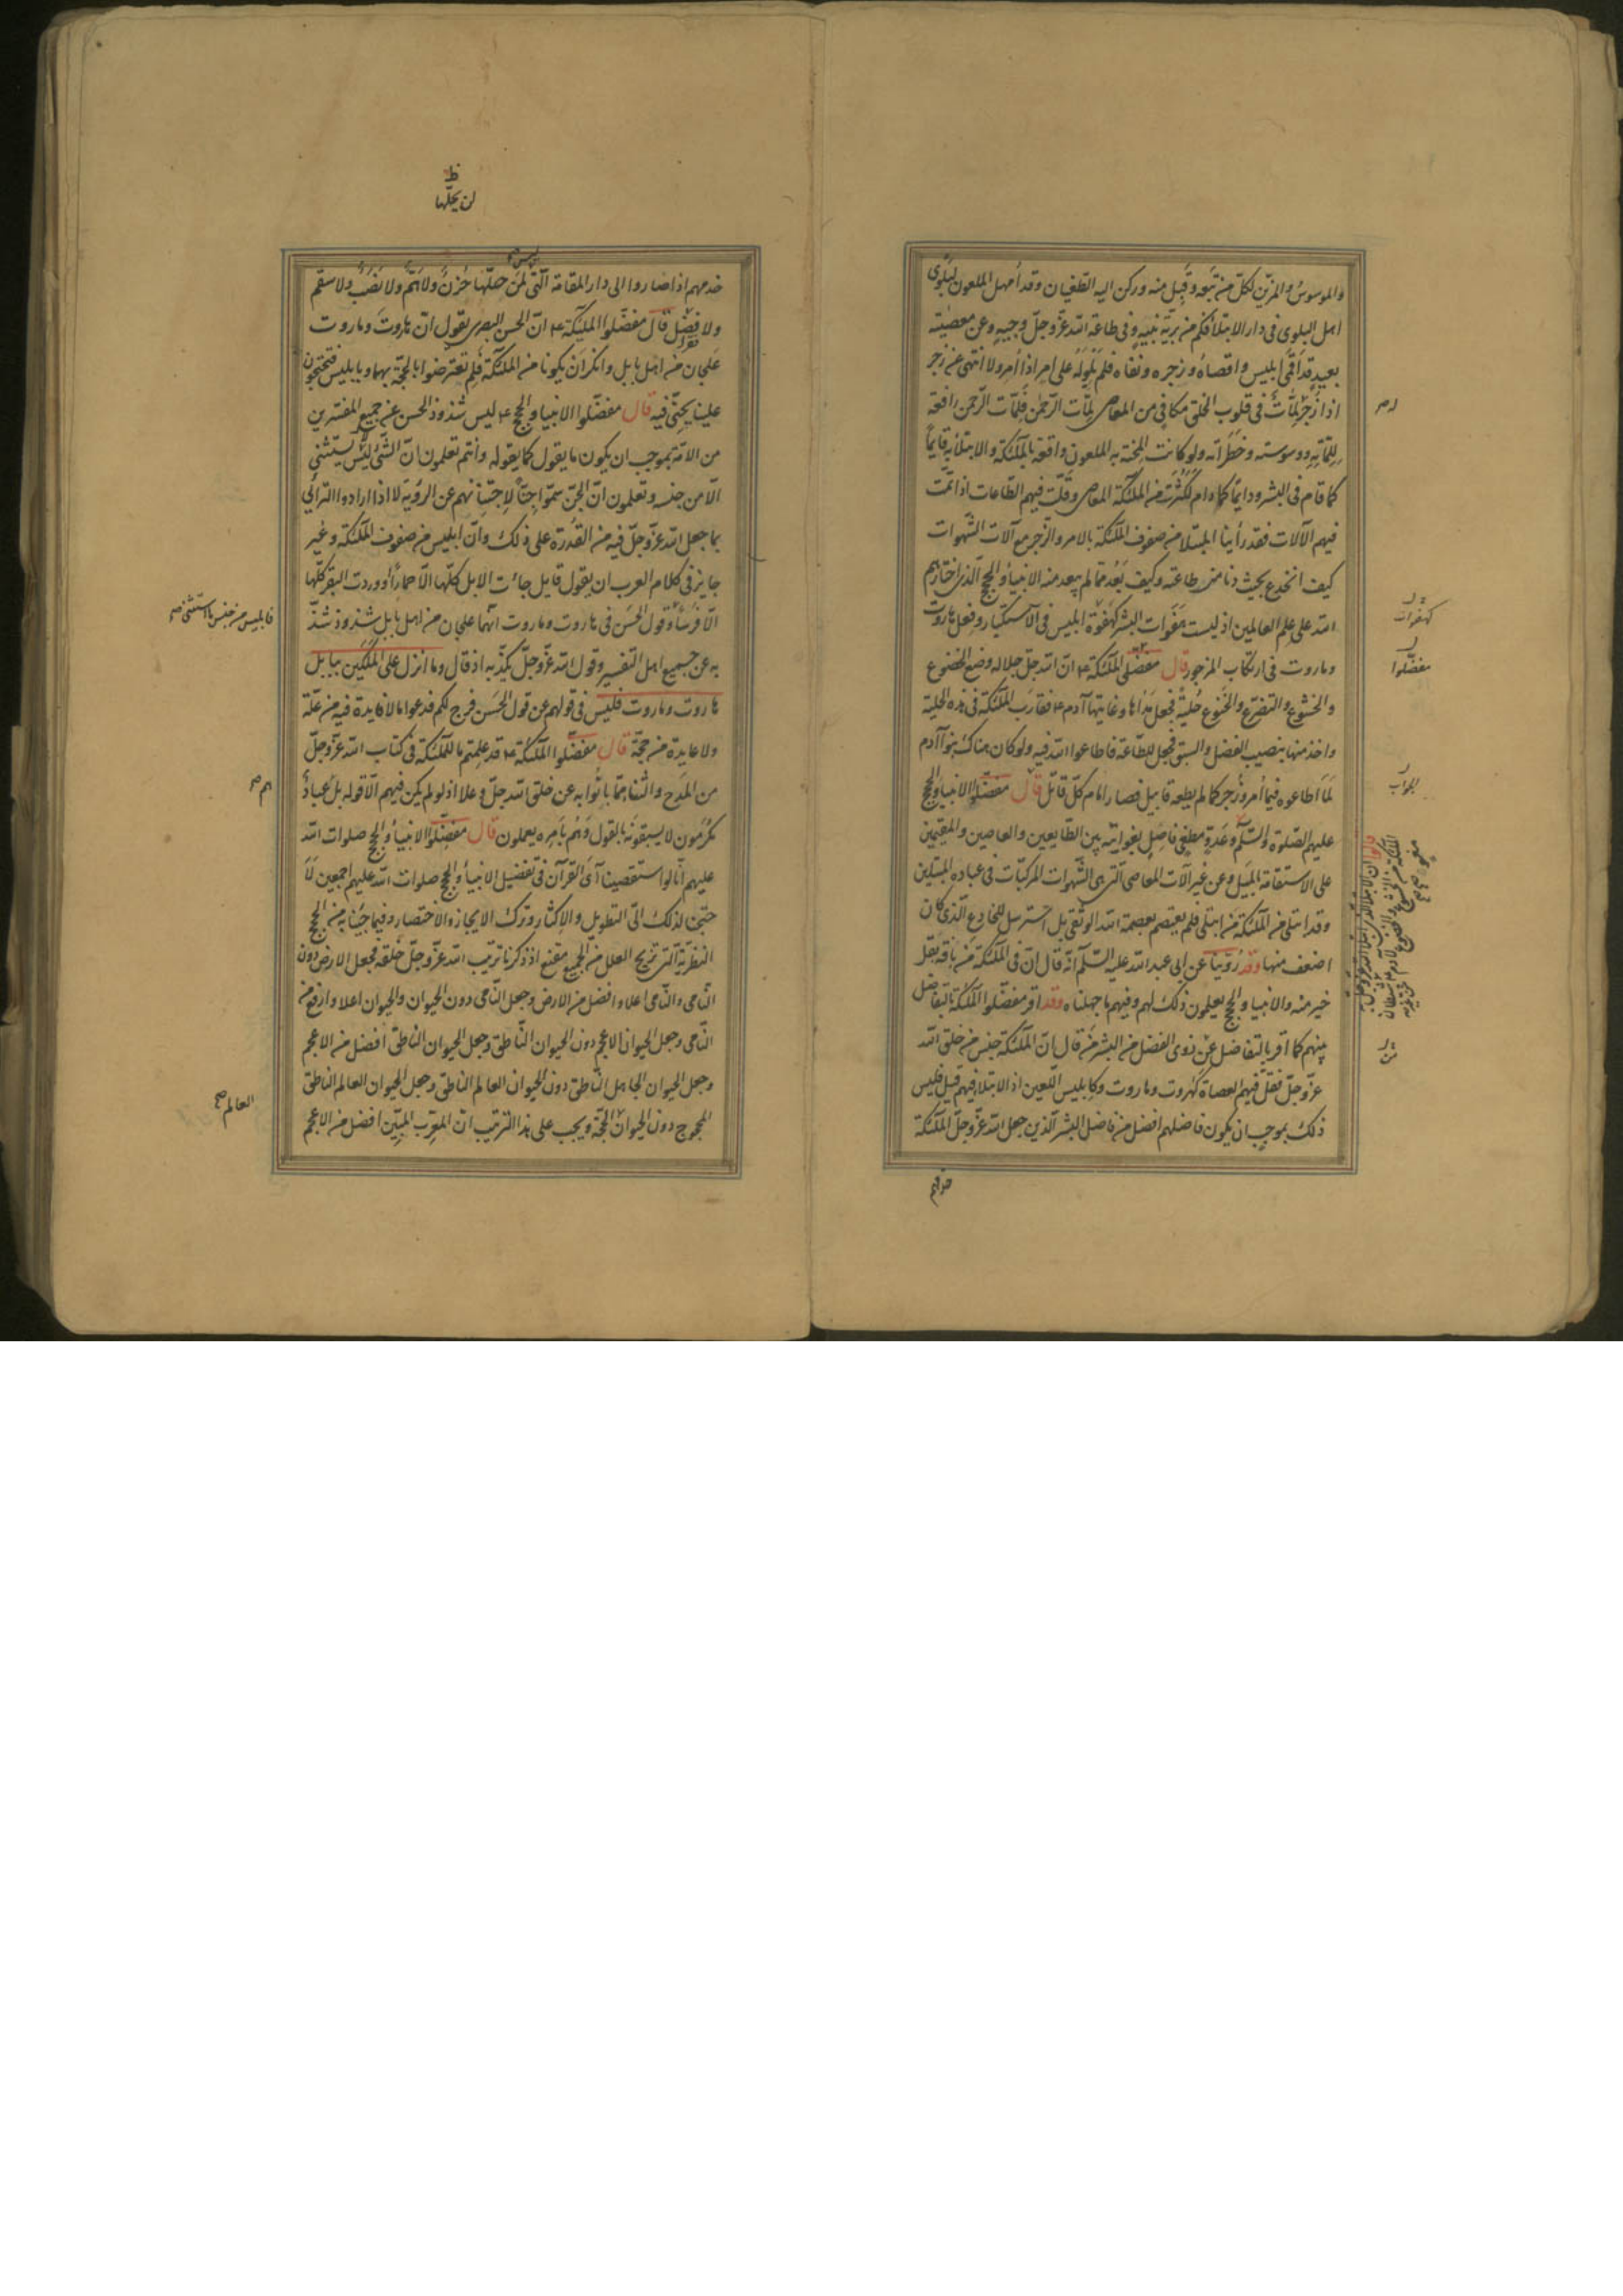 والموسوس والمزين لكل من تبعه وقبل منه وركن اليه الطغيان وقد أمهل الملعون لبلوى
اهل البلوى فى دار الابتلا فكم من برية نبيه وفى طاعة الله عز وجل وجيه وعن معصيته
بعيد قد اقمى ابليس واقصاه وزجره ونفاه فلم يلو له على امر اذا أمر ولا انتهى عن زجر
اذا زجر لمات فى قلوب الخلق مكافى من المعاصى لمات الرحمن فلمات الرحمن دافعة
للماته ووسوسته وخطراته ولو كانت المحنة به الملعون واقعة بالملئكة والابتلا به قايما
كما قام فى البشر ودايما كما دام لكثرت من الملئكة المعاصى وقلت فيهم الطاعات اذا تمت
فيهم الآلات فقد رأينا المبتلا من صفوف الملئكة بالامر والزجر مع آلات الشهوات
كيف انخدع بحيث دنا من طاعته وكيف بعد مما لم يبعد منه الانبيا والحجج الذى اختارهم
الله على علم العالمين اذ ليست هفوات البشر كهفوة ابليس فى الاستكبار وفعل هاروت
وماروت فى ارتكاب المزجور قال مفضلى الملئكة ء ان الله جل جلاله وضع الخضوع
والخشوع والتضرع والخنوع حلية فجعل مداها وغايتها آدم ء فقارب الملئكة فى هذه الحلية
واخذ منها بنصيب الفضل والسبق فجعل للطاعة فاطاعوا الله فيه ولو كان هناك بنوا آدم
لما اطاعوه فيما أمر وزجر كما لم يطعه قابيل فصار امام كل قاتل قال مفضلوا الانبيا والحجج
عليهم الصلوة والسلم وعدو مطغى فاصل بغوايته بين الطايعين والعاصين والمقيمين
على الاستقامة الميل وعن غير آلات المعاصى التى هى الشهوات المركبات فى عباده المبتلين
وقد ابتلى من الملئكة من ابتلى فلم يعتصم بعصمة الله الوثقى بل استرسل للخادع الذى كان
اضعف منها وقد روينا عن ابى عبد الله عليه السلم انه قال ان فى الملئكة من باقة بقل
خير منه والانبيا والحجج يعلمون ذلك لهم وفيهم ما جهلناه وقد اقر مفضلوا الملئكة بالتفاضل
بينهم كما اقر بالتفاضل عن ذوى الفضل من البشر من قال ان الملئكة جنس من خلق الله
عز وجل فقل فيهم العصاة كهروت وماروت وكابليس اللعين اذ الابتلا فيهم قليل فليس
ذلك بموجب ان يكون فاضلهم افضل من فاضل البشر الذين جعل الله عز وجل الملئكة
كهفوات
مفضلوا
الجواب
لن يحلها
خدمهم اذا صاروا الى دار المقامة التى لمن حلها حزن ولا هم ولا نصب ولا سقم
ولا فقر قال مفضلوا الملئكة ء ان الحسن البصرى يقول ان هاروت وماروت
علجان من اهل بابل وانكر ان يكونا من الملئكة فلم تعترضوا بالحجة بهما وبابليس فتحتجون
علينا بجنى فيه قال مفضلوا الانبيا والحجج ء ليس شذوذ الحسن عن جميع المفسرين
من الامة بموجب ان يكون ما يقول كما يقوله وانتم تعلمون ان الشئ ليس يستثنى
الا من جنسه وتعلمون ان الجن سموا جنا لاجتنانهم عن الرؤية لا اذا ارادوا الترائى
بما جعل الله عز وجل فيه من القدرة على ذلك وان ابليس من صفوف الملئكة وغير
جايز فى كلام العرب ان يقول قايل جائت الابل كلها الا حمارا ووردت البقر كلها
الا فرسا وقول الحسن فى هاروت وماروت انهما علجان من اهل بابل شذوذ شذ
به عن جميع اهل التفسير وقول الله عز وجل يكذبه اذ قال وما انزل على الملكين ببابل
هاروت وماروت فليس فى قولهم عن قول الحسن فرج لكم فدعوا ما لا فايدة فيه من علة
ولا عايدة من حجة قال مفضلوا الملئكة ء قد علمتم ما للملئكة فى كتاب الله عز وجل
من المدح والثنا مما بانوا به عن خلق الله جل وعلا اذ لو لم يكن فيهم الا قوله بل عباد
مكرمون لا يسبقونه بالقول وهم بأمره يعملون قال مفضلوا الانبيا والحجج صلوات الله
عليهم انا لو استقصينا آى القرآن فى تفضيل الانبيا والحجج صلوات الله عليهم اجمعين لا
حتجنا لذلك الى التطويل والاكثار وترك الايجاز والاختصار وفيما جئنا به من الحجج
النظرية التى تزيح العلل من الجميع مقنع اذ ذكرنا ترتيب الله عز وجل خلقه فجعل الارض دون
النامى والنامى اعلا وافضل من الارض وجعل النامى دون الحيوان والحيوان اعلا وارفع من
النامى وجعل الحيوان الاعجم دون الحيوان الناطق وجعل الحيوان الناطق افضل من الاعجم
وجعل الحيوان الجاهل الناطق دون الحيوان العالم الناطق وجعل الحيوان العالم الناطق
المحجوج دون الحيوان الحجة ويجب على هذا الترتيب ان المعرب المبين افضل من الاعجم
فابليس من جنس ما استثنى صح
العالم صح